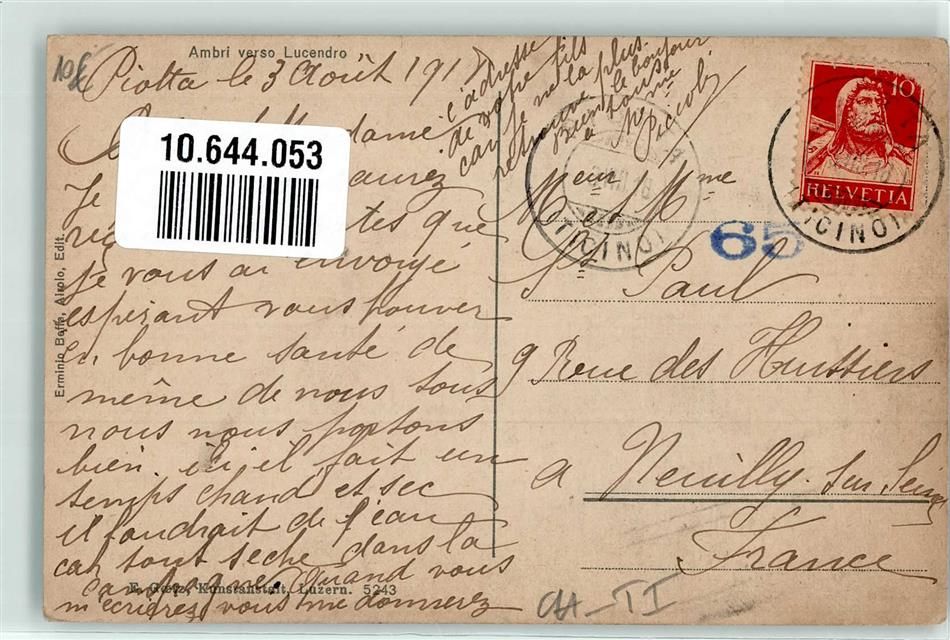 Ambri verso Lucendro
10f
Piotta le 3 Août 1917
Madame
10.644.053
Je aurez
tes que
je vous ai envoyé
espérant vous trouver
en bonne santé de
même de nous tous
nous nous portons
bien. ici il fait un
temps chaud et sec
il faudrait de l'eau
car tout sèche dans la
campagne. Quand vous
m'écrirez vous me donnerez
l'adresse
de votre fils
car je ne la plus
retrouve
bien le bonjour
à tous
Mme Piccoli
Erminio Beffa, Airolo, Edit.
E. Goetz, Kunstanstalt, Luzern. 5243
10
HELVETIA
(TICINO)
(TICINO)
65
Meur Mme
St Paul
9 Rue des Huissiers
a Neuilly sur Seine
France
CH-TI